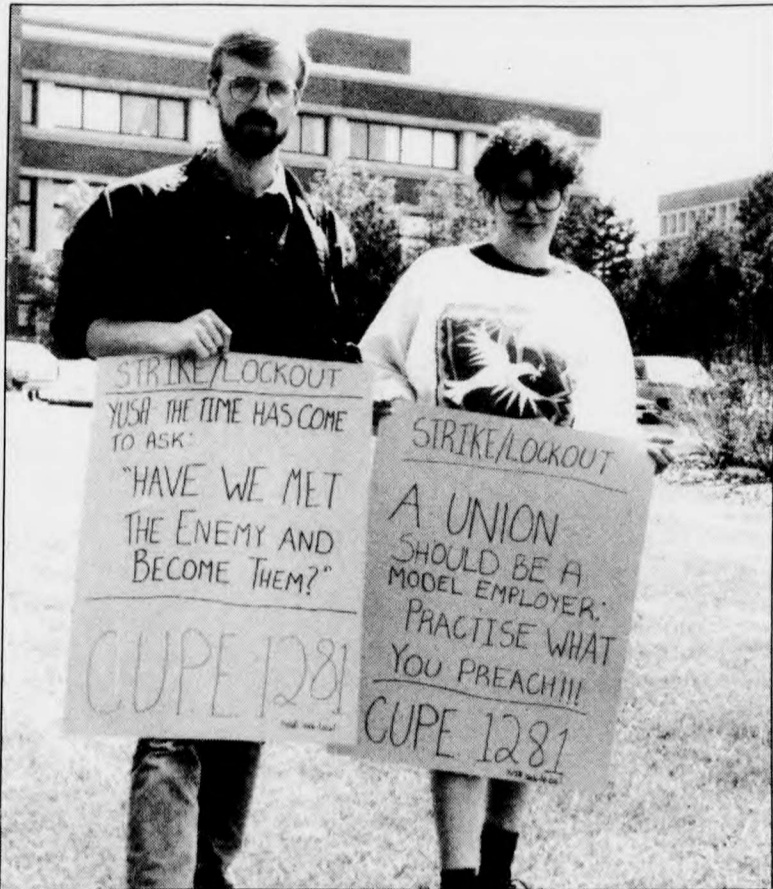 STRIKE/LOCKOUT
YUSA- THE TIME HAS COME
TO ASK:
"HAVE WE MET
THE ENEMY AND
BECOME THEM?"
CUPE 1281
STRIKE/LOCKOUT
A UNION
SHOULD BE A
MODEL EMPLOYER:
PRACTISE WHAT
YOU PREACH!!!
CUPE 1281